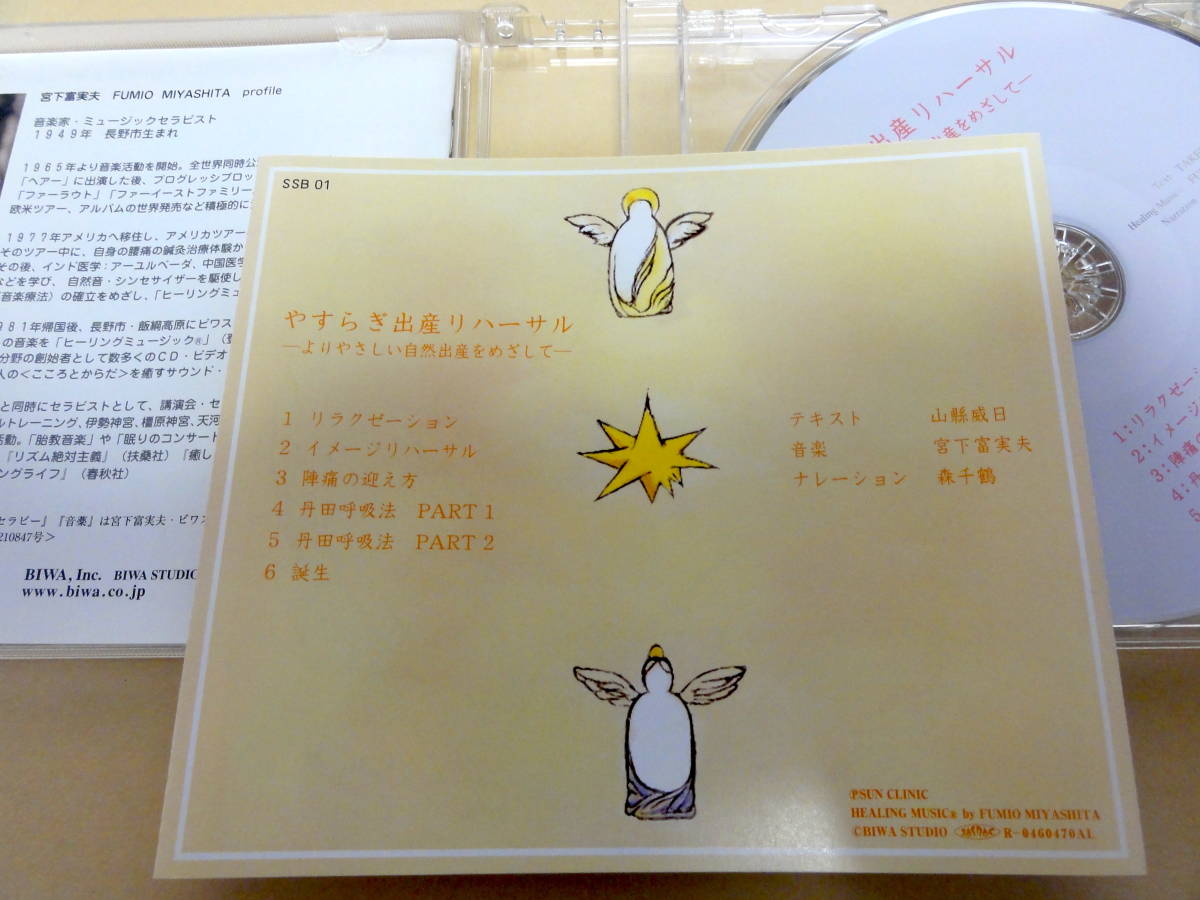 宮下富実夫 FUMIO MIYASHITA profile
音楽家・ミュージックセラピスト
1949年 長野市生まれ
1965年より音楽活動を開始。全世界同時公
「ヘアー」に出演した後、プログレッシブロッ
「ファーラウト」「ファーイーストファミリー
欧米ツアー、アルバムの世界発売など積極的に
1977年アメリカへ移住し、アメリカツアー
そのツアー中に、自身の腰痛の鍼灸治療体験か
その後、インド医学:アーユルベーダ、中国医学
などを学び、自然音・シンセサイザーを駆使し
音楽療法）の確立をめざし、「ヒーリングミュ
981年帰国後、長野市・飯綱高原にビワス
の音楽を「ヒーリングミュージック®」
分野の創始者として数多くのCD・ビデオ
人の<こころとからだ>を癒すサウンド・
と同時にセラピストとして、講演会・セ
ルトレーニング、伊勢神宮、橿原神宮、天河
活動。「胎教音楽」や「眠りのコンサート
「リズム絶対主義」（扶桑社）「癒し
ングライフ」（春秋社）
セラピー』『音楽』は宮下富実夫・ビワス
210847号>
BIWA, Inc. BIWA STUDIO
www.biwa.co.jp
SSB 01
やすらぎ出産リハーサル
―よりやさしい自然出産をめざして―
1 リラクゼーション
2 イメージリハーサル
3 陣痛の迎え方
4 丹田呼吸法 PART 1
5 丹田呼吸法 PART 2
6 誕生
テキスト 山縣威日
音楽 宮下富実夫
ナレーション 森千鶴
ⓅSUN CLINIC
HEALING MUSIC® by FUMIO MIYASHITA
©BIWA STUDIO R-0460470AL
出産リハーサル
出産をめざして―
Text
Healing Music
Narration
1:リラクゼーシ
2:イメージ
3:陣痛
4:丹
5